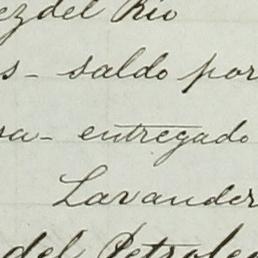 ez del Rio
s - saldo por
sa - entregado
Lavander
del Petroleo